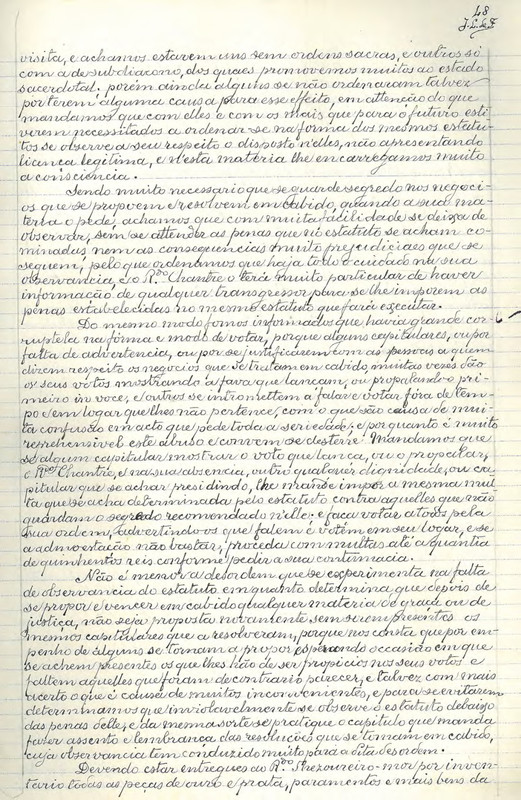 48
J. C. de F.
visita, e achamos estarem uns sem ordens sacras, e outros só
com a de subdiacono, dos quaes promovemos muitos ao estado
sacerdotal. porém ainda alguns se não ordenaram talvez
por terem alguma causa para esse effeito, em attenção do que
mandamos que com elles e com os mais que para o futuro esti-
verem necessitados a ordenar-se na forma dos mesmos estatu-
tos se observe a seu respeito o disposto n'elles, não apresentando
licença legitima, e n'esta materia lhe encarregamos muito
a consciencia.
Sendo muito necessario que se guarde segredo nos negoci-
os que se propoem e resolvem em Cabido, quando a sua ma-
teria o pede, achamos que com muita facilidade se deixa de
observar, sem se attender as penas que no estatuto se acham co-
minadas nem as consequencias muito prejudiciaes que se
seguem; pelo que ordenamos que haja todo o cuidado na sua
observancia, e o R.do Chantre o terá muito particular de haver
informação de qualquer transgressor para se lhe imporem as
penas estabelecidas no mesmo estatuto que fará executar.
Do mesmo modo fomos informados que havia grande cor-
ruptela na fórma e modo de votar, porque alguns capitulares, ou por
falta de advertencia, ou por se justificarem com as pessoas a quem
dizem respeito os negocios que se tratam em cabido muitas vezes dão
os seus votos mostrando a fava que lançam, ou propalando o pri-
meiro in voce, e outros se intromettem a falar e votar fóra de tem-
po e em logar que lhes não pertence, com o que são causa de mui-
ta confusão em acto que pede toda a seriedade; e porquanto é muito
reprehensivel este abuso e convem se desterre: Mandamos que
se algum capitular mostrar o voto que lança, ou o propalar,
o R.do Chantre, e na sua absencia, outro qualquer dignidade, ou ca-
pitular que se achar presidindo, lhe mande impor a mesma mul-
ta que se acha determinada pelo estatuto contra aquelles que não
guardam o segredo recomendado n'elle; e faça votar a todos pela
sua ordem, advertindo-os que falem e votem em seu logar, e se
a admoestação não bastar, proceda com multas até a quantia
de quinhentos reis conforme pedir a sua contumacia.
Não é menor a desordem que se experimenta na falta
de observancia do estatuto emquanto determina que depois de
se propor e vencer em cabido qualquer materia de graça ou de
justiça, não seja proposta novamente sem serem presentes os
mesmos capitulares que a resolveram, porque nos consta que por em-
penho de alguns se tornam a propor esperando occasião em que
se achem presentes os que lhes hão de ser propicios nos seus votos e
faltem aquelles que foram de contrario parecer, e talvez com mais
acerto o que é causa de muitos inconvenientes, e para se evitarem
determinamos que inviolavelmente se observe o estatuto debaixo
das penas delle, e da mesma sorte se pratique o capitulo que manda
fazer assento e lembrança das resoluções que se tomam em cabido,
cuja observancia tem conduzido muito para a dita desordem.
Devendo estar entregues ao R.do Thezoureiro-mor por inven-
tario todas as peças de ouro e prata, paramentos e mais bens da